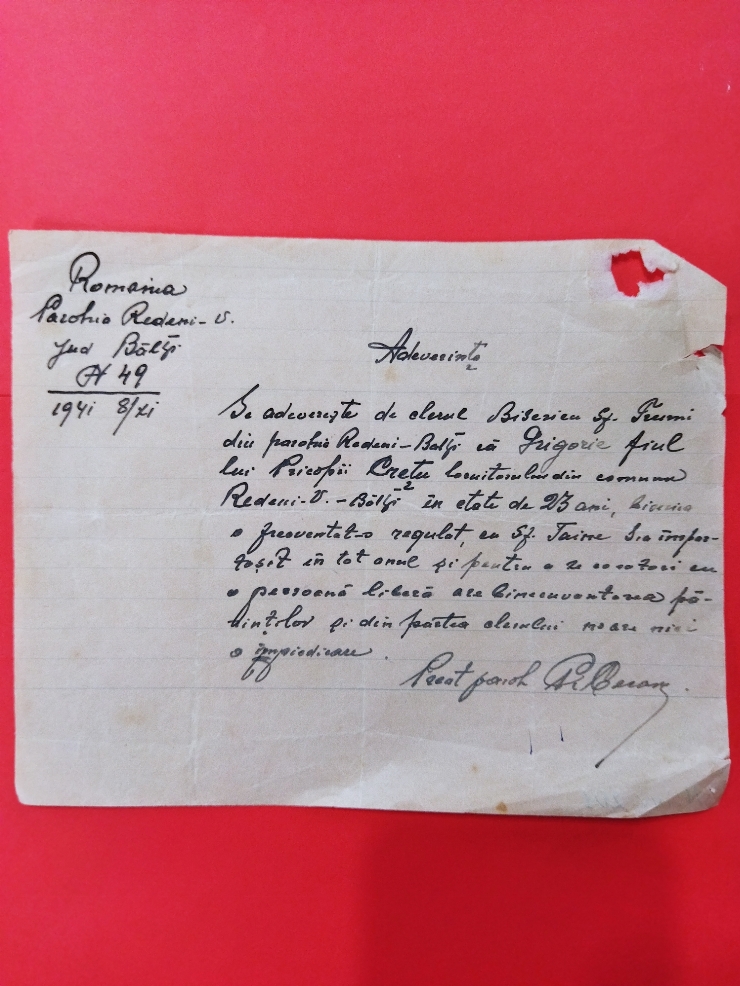 Romania
Parohia Redeni-V.
Jud Bălți
N 49
1941 8/XI
Adeverință
Se adeverește de clerul Bisericii Sf. Treimi
din parohia Redeni-Bălți că Grigorie fiul
lui Pricopii Crețu locuitorului din comuna
Redeni-V.-Bălți în etate de 23 ani, biserica
o frecventat-o regulat, cu Sf. Taine s-a împăr-
tășit în tot anul și pentru a se cocatori cu
o persoană liberă are binecuvântarea pă-
rinților și din partea clerului nu are nici
o împiedicare.
Preot paroh